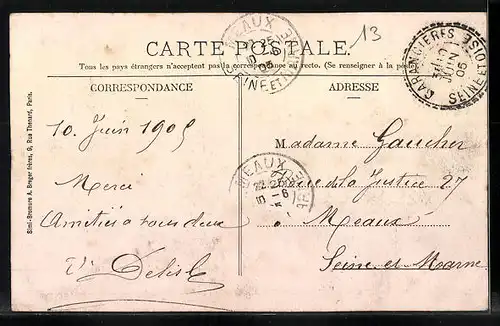 13
CARTE POSTALE
Tous les pays étrangers n'acceptent pas la correspondance au recto. (Se renseigner à la poste)
CORRESPONDANCE
ADRESSE
10 Juin 1905
Merci
Amitiés à vous deux
Delisle
Madame Gaucher
de la Justice 27
Meaux
Seine et Marne
MEAUX
SEINE ET MARNE
GARANCIÈRES
SEINE ET OISE
05
MEAUX
Simi-Bromure A. Breger frères, 9, Rue Thénard, Paris.